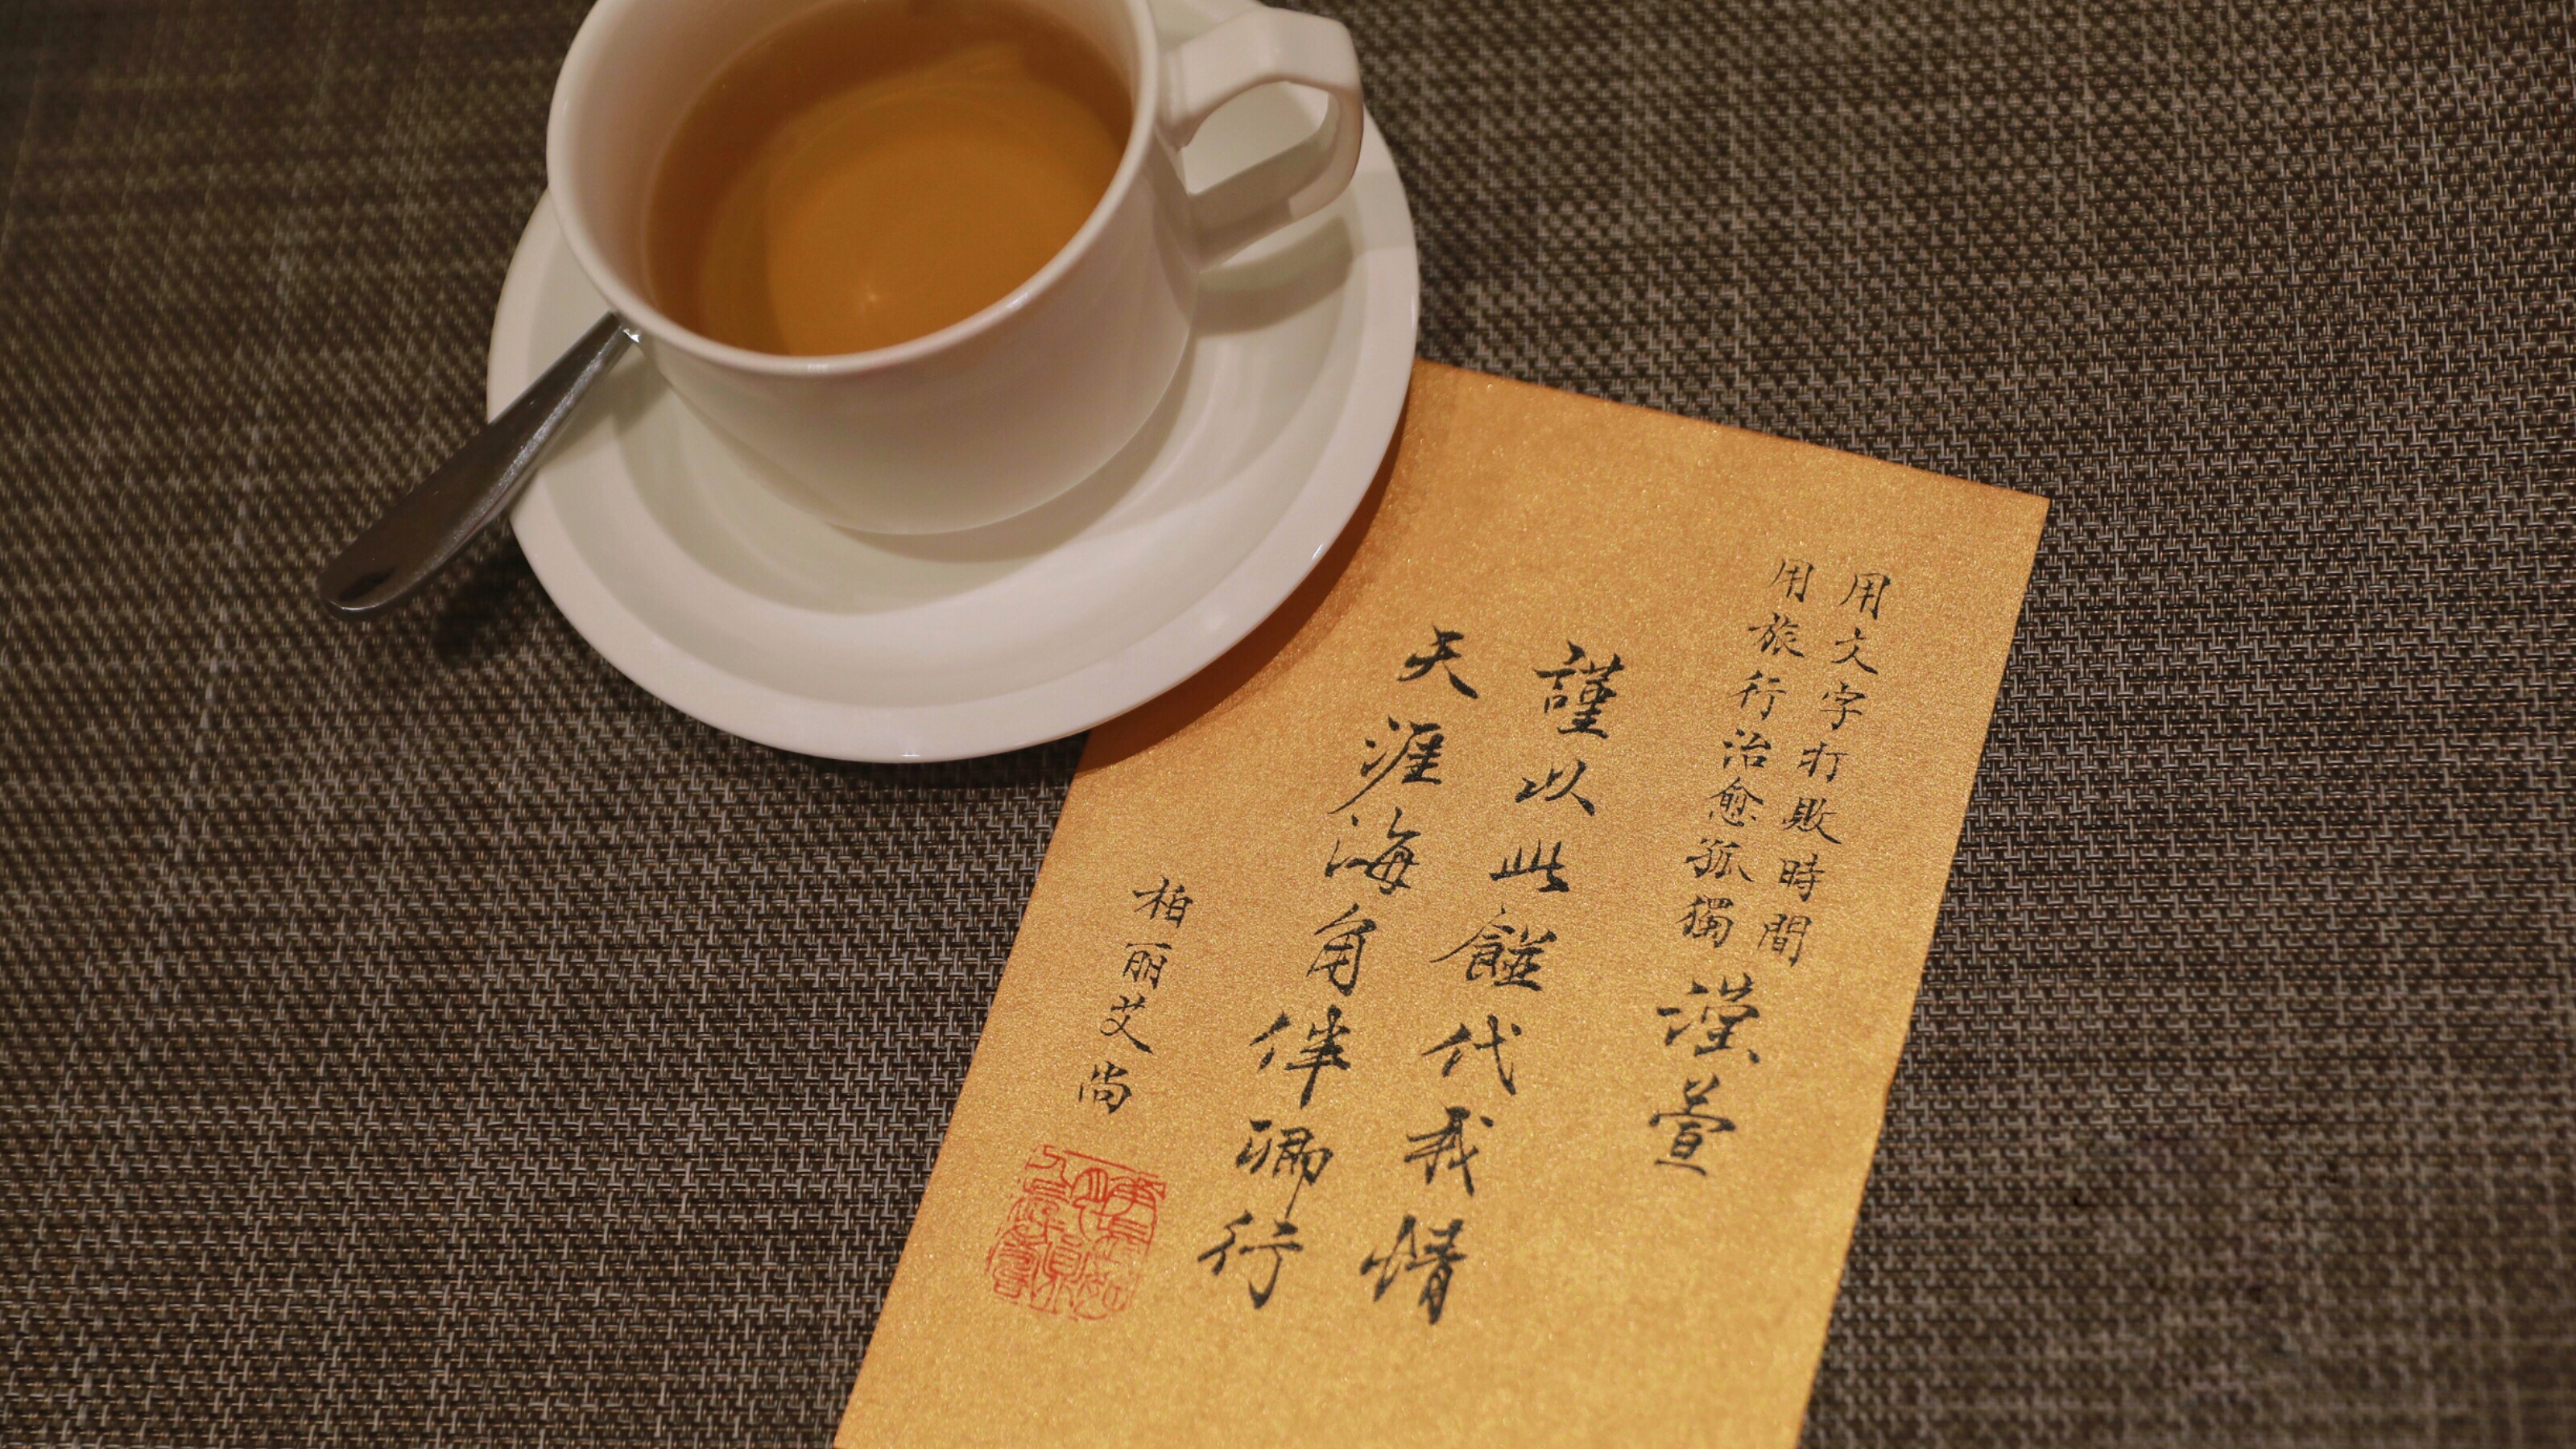 用文字打敗時間
用旅行治愈孤獨
漢萱
謹以此饈代我情
天涯海角伴卿行
柏丽艾尚